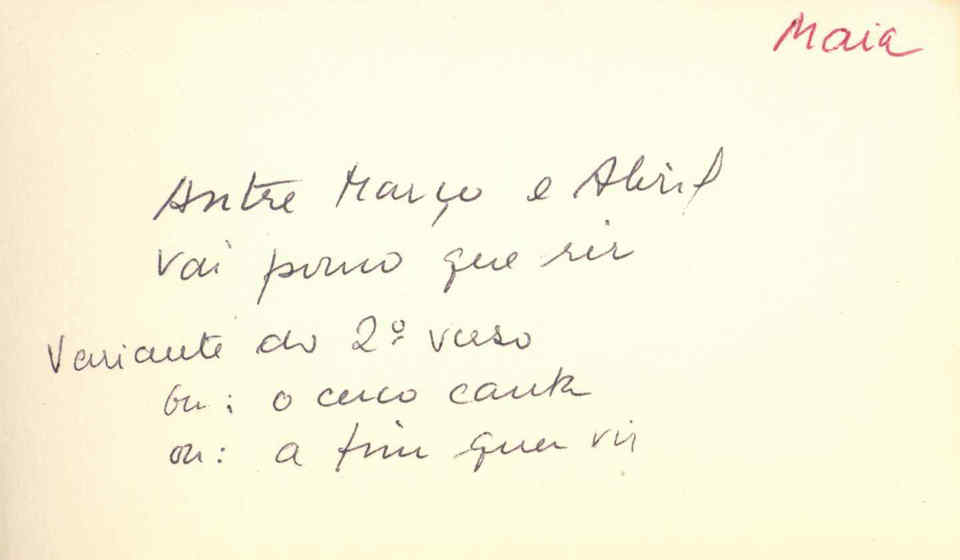 Maia
Antre Março e Abril
vai pouco que rir
Variante do 2º verso
ou: o cuco canta
ou: a fim quer vir